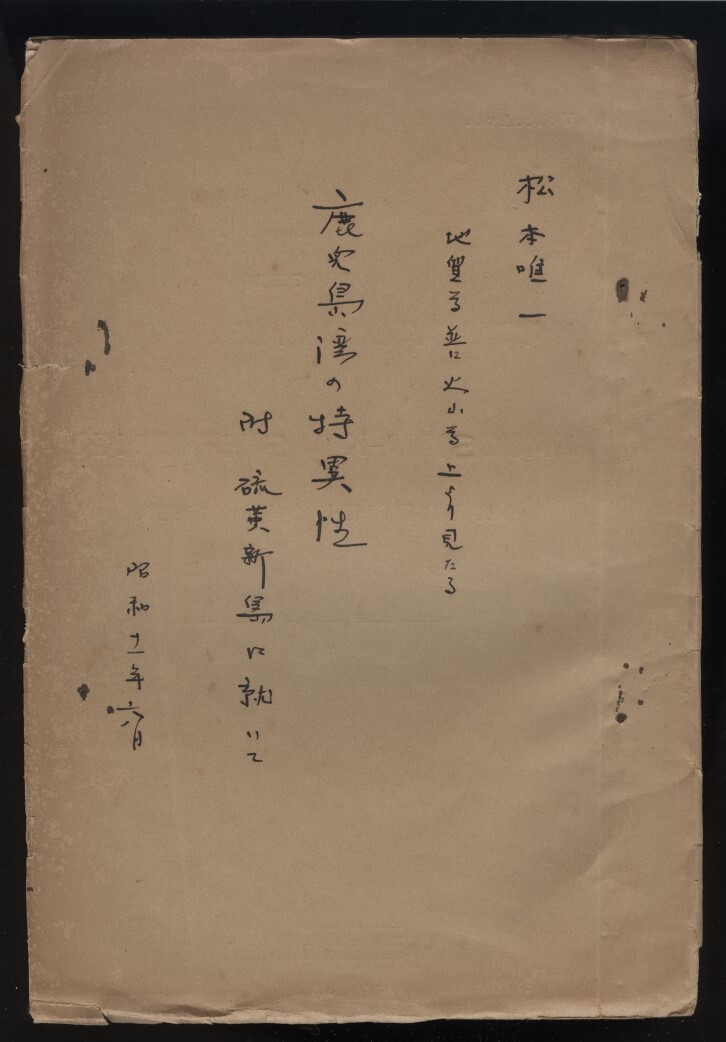 松本唯一
地質学並に火山学上より見たる
鹿児島湾の特異性
附 硫黄新島に就いて
昭和十一年六月